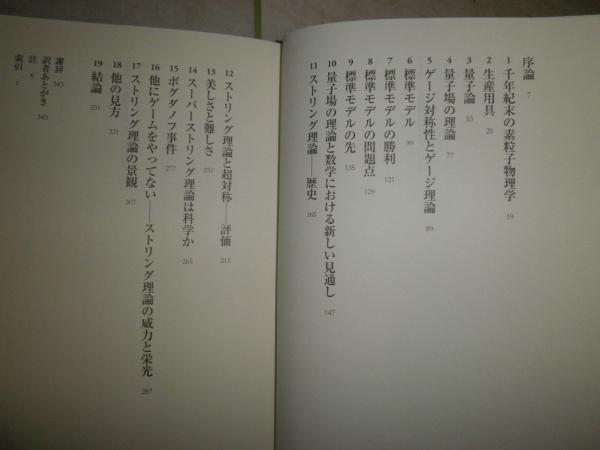 序論 7
1 千年紀末の素粒子物理学 19
2 生産用具 25
3 量子論 53
4 量子場の理論 77
5 ゲージ対称性とゲージ理論 89
6 標準モデル 99
7 標準モデルの勝利 121
8 標準モデルの問題点 129
9 標準モデルの先 135
10 量子場の理論と数学における新しい見通し 147
11 ストリング理論——歴史 185
12 ストリング理論と超対称——評価 213
13 美しさと難しさ 251
14 スーパーストリング理論は科学か 263
15 ボグダノフ事件 277
16 他にゲームをやってない——ストリング理論の威力と栄光 287
17 ストリング理論の景観 307
18 他の見方 321
19 結論 331
謝辞 343
訳者あとがき 345
註 x
索引 i